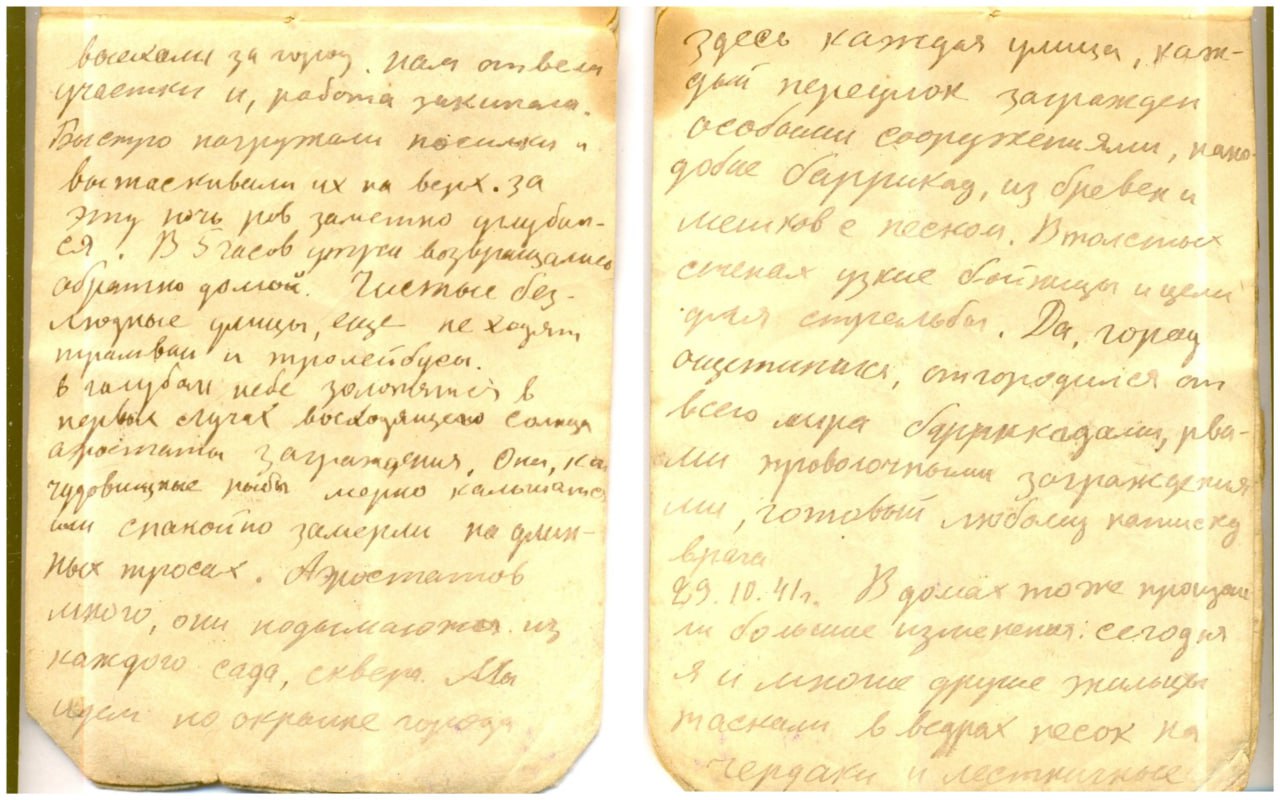 выехали за город. Нам отвели
участки и, работа закипела.
Быстро нагружали носилки и
вытаскивали их на верх. За
эту ночь ров заметно углубил-
ся. В 5 часов утра возвращались
обратно домой. Чистые без-
людные улицы, еще не ходят
трамваи и тролейбусы.
В голубом небе золотятся в
первых лучах восходящего солнца
аэростаты заграждения. Они, как
чудовищные рыбы мерно колышатся
или спокойно замерли на длин-
ных тросах. Аэростатов
много, они подымаются из
каждого сада, сквера. Мы
идем по окраине города
здесь каждая улица, каж-
дый переулок загражден
особыми сооружениями, напо-
добие баррикад, из бревен и
мешков с песком. В толстых
стенах узкие бойницы и щели
для стрельбы. Да, город
ощетинился, отгородился от
всего мира баррикадами, рва-
ми проволочными заграждения
ми, готовый любому натиску
врага
29.10.41г. В домах тоже произош
ли большие изменения: сегодня
я и многие другие жильцы
таскали в ведрах песок на
чердаки и лестничные